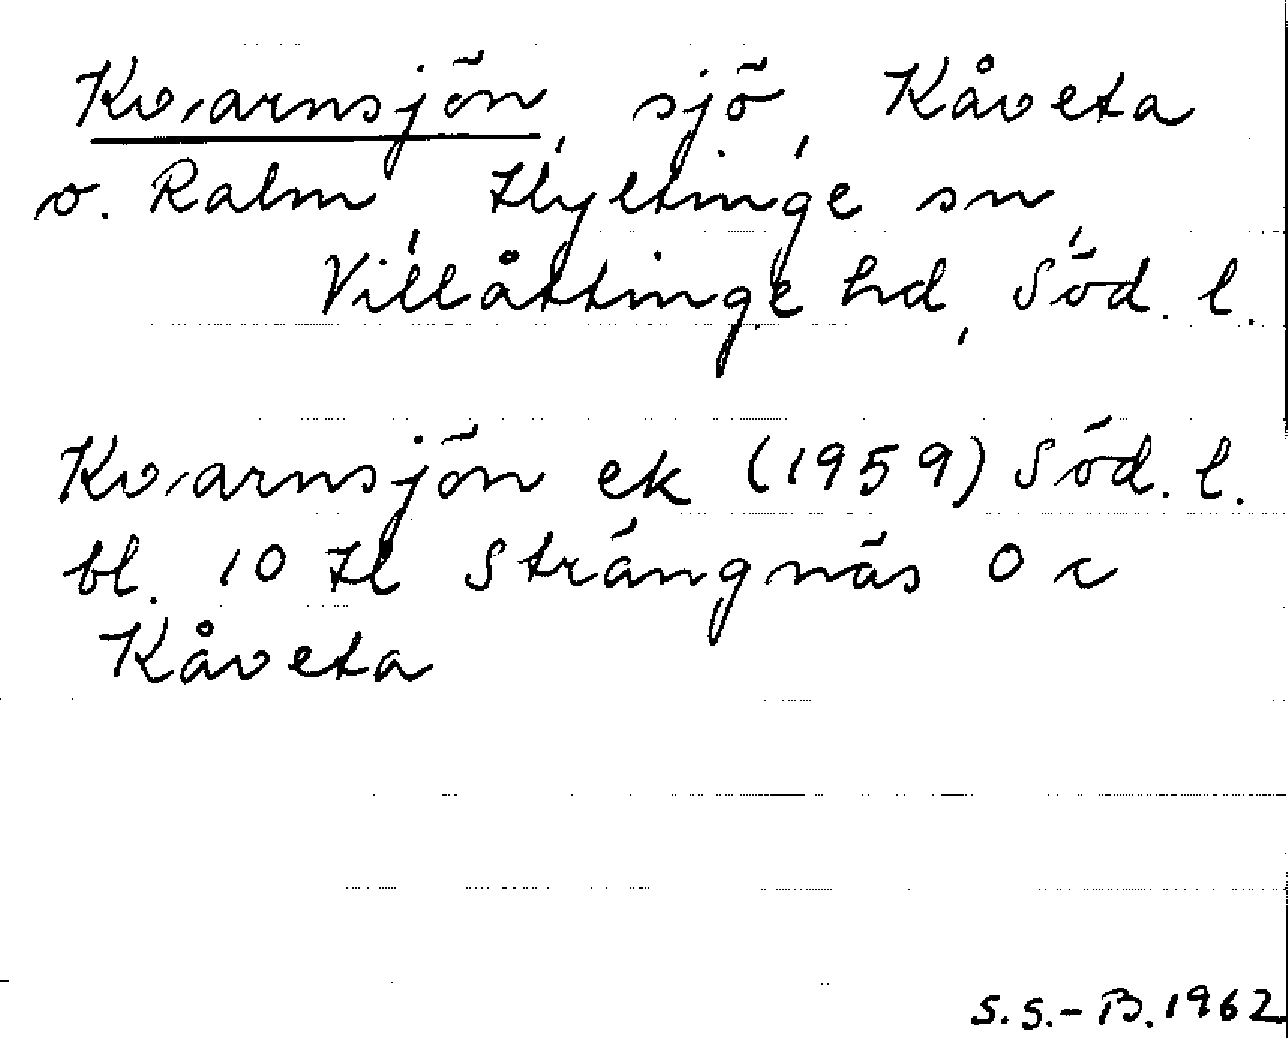 Kvarnsjön, sjö, Kåveta
o. Ralm, Hyltinge sn,
Villåttinge hd, Söd. l.
Kvarnsjön ek (1959) Söd. l.
bl. 10 H Strängnäs 0 c
Kåveta
S.S.-B. 1962